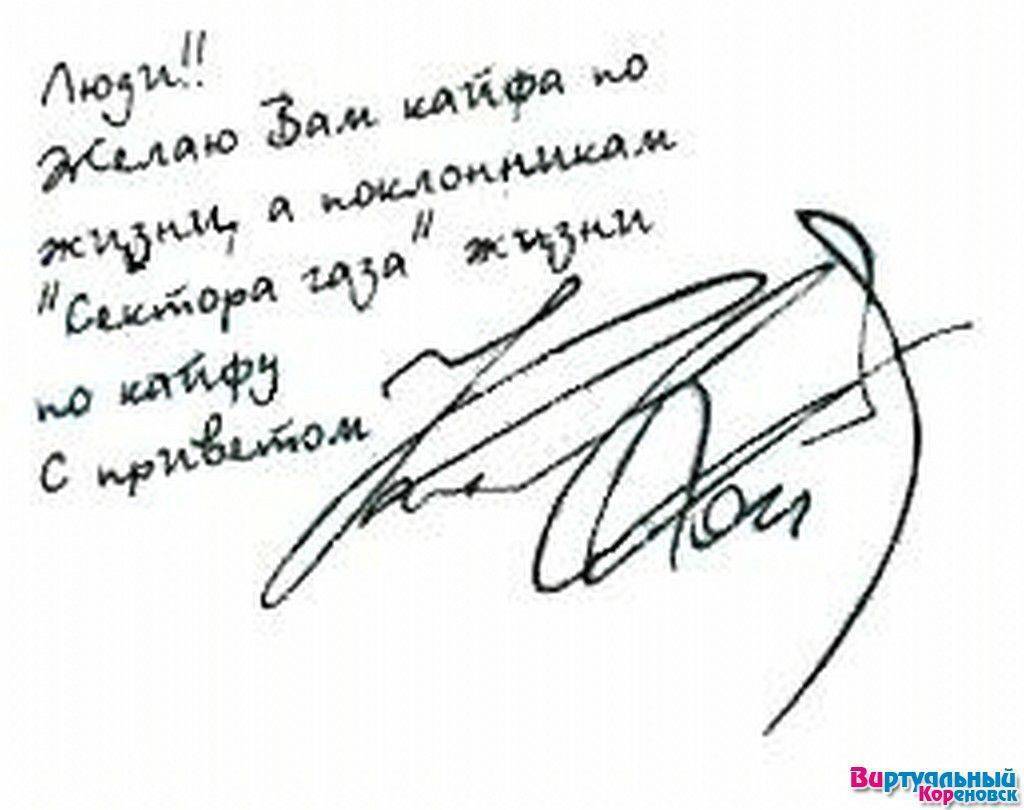 Люди!!
Желаю Вам кайфа по
жизни, а поклонникам
"Сектора газа" жизни
по кайфу
С приветом
Виртуальный
Кореновск